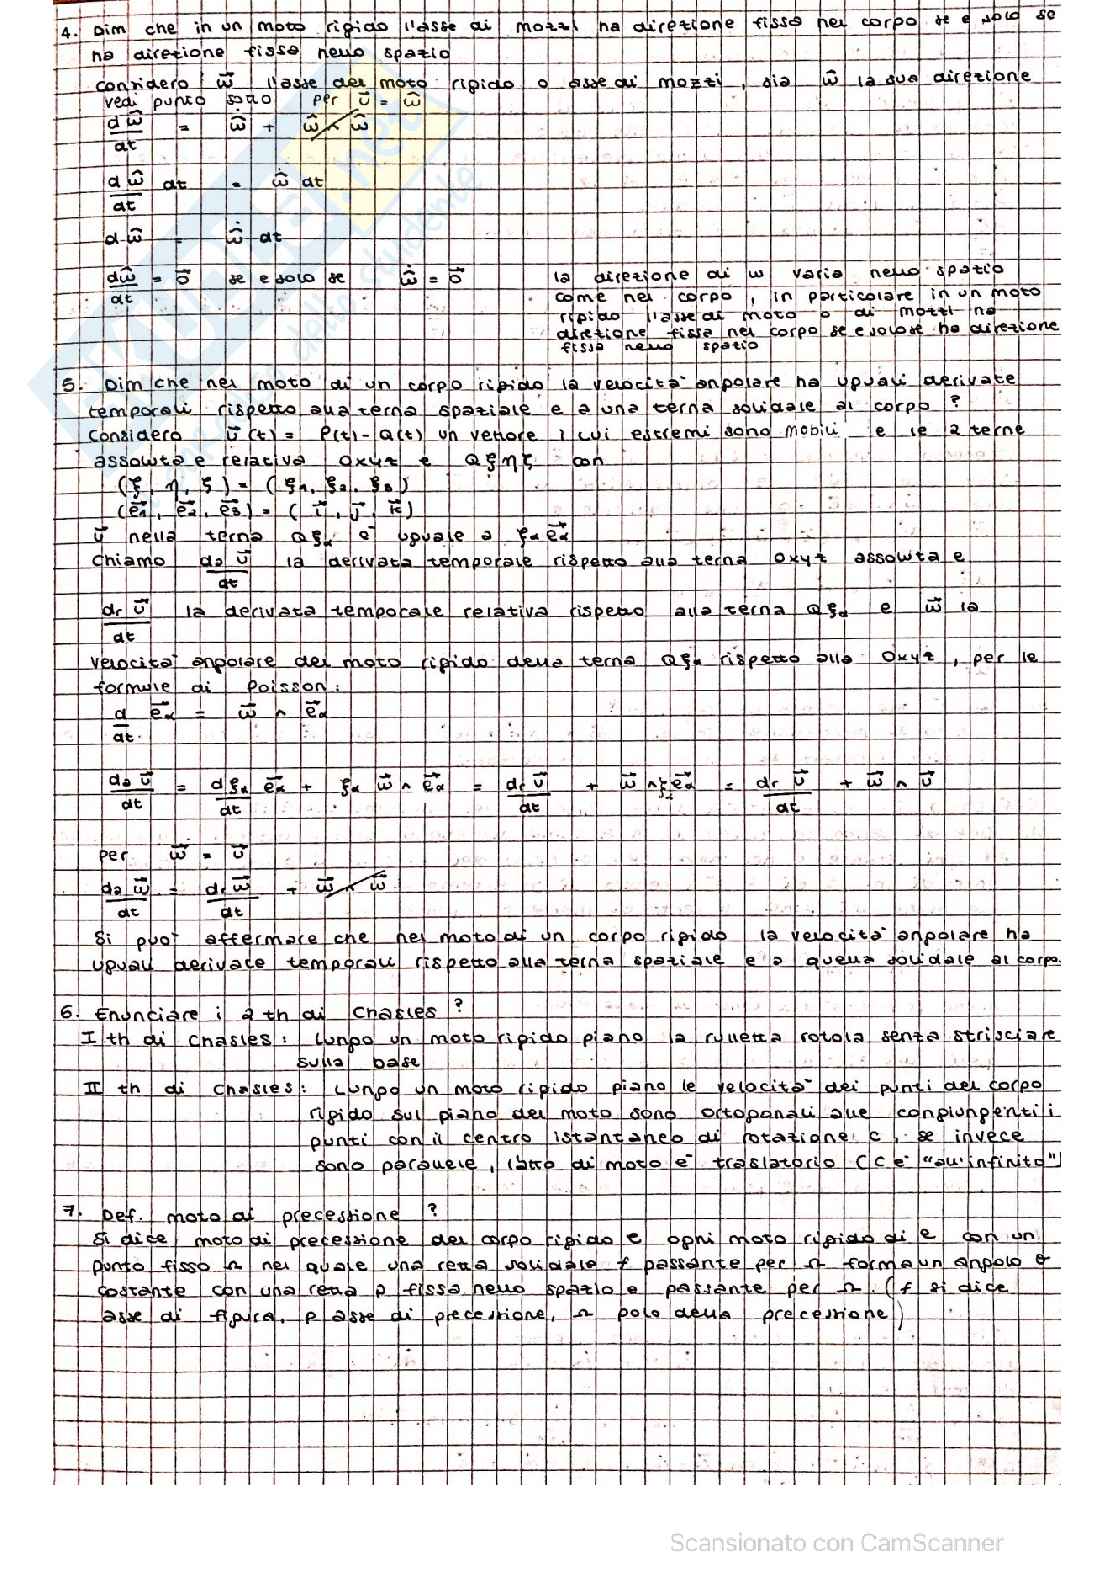 4. Dim che in un moto rigido l'asse di mozzi ha direzione fissa nel corpo se e solo se
ha direzione fissa nello spazio
considero ω⃗ l'asse del moto rigido o asse di mozzi, sia ω̂ la sua direzione
vedi punto sotto per v⃗ = ω̂
dω̂/dt = ω̂˙ + ω̂ ∧ ω̂
dω̂/dt dt = ω̂˙ dt
dω̂ = ω̂˙ dt
dω̂/dt = 0⃗ se e solo se ω̂˙ = 0⃗
la direzione di ω varia nello spazio
come nel corpo, in particolare in un moto
rigido l'asse di moto o di mozzi ha
direzione fissa nel corpo se e solo se ha direzione
fissa nello spazio
5. Dim che nel moto di un corpo rigido la velocità angolare ha uguali derivate
temporali rispetto alla terna spaziale e a una terna solidale al corpo?
Considero v⃗(t) = P(t) - Q(t) un vettore i cui estremi sono mobili e le 2 terne
assoluta e relativa Oxyz e Qξηζ con
(ξ, η, ζ) = (ξ₁, ξ₂, ξ₃)
(e⃗₁, e⃗₂, e⃗₃) = (i⃗, j⃗, k⃗)
v⃗ nella terna Qξα è uguale a ξα e⃗α
Chiamo da v⃗/dt la derivata temporale rispetto alla terna Oxyz assoluta e
dr v⃗/dt la derivata temporale relativa rispetto alla terna Qξα e ω⃗ la
velocità angolare del moto rigido della terna Qξα rispetto alla Oxyz, per le
formule di Poisson:
d/dt e⃗α = ω⃗ ∧ e⃗α
da v⃗/dt = dξα/dt e⃗α + ξα ω⃗ ∧ e⃗α = dr v⃗/dt + ω⃗ ∧ ξα e⃗α = dr v⃗/dt + ω⃗ ∧ v⃗
per ω⃗ = v⃗
da ω⃗/dt = dr ω⃗/dt + ω⃗ ∧ ω⃗
Si può affermare che nel moto di un corpo rigido la velocità angolare ha
uguali derivate temporali rispetto alla terna spaziale e a quella solidale al corpo.
6. Enunciare i 2 th di Chasles?
I th di Chasles: Lungo un moto rigido piano la rulletta rotola senza strisciare
sulla base
II th di Chasles: Lungo un moto rigido piano le velocità dei punti del corpo
rigido sul piano del moto sono ortogonali alle congiungenti i
punti con il centro istantaneo di rotazione C, se invece
sono parallele, l'atto di moto è traslatorio (C è "all'infinito")
7. Def. moto di precessione?
Si dice moto di precessione del corpo rigido e ogni moto rigido di e con un
punto fisso Ω nel quale una retta solidale f passante per Ω forma un angolo θ
costante con una retta p fissa nello spazio e passante per Ω. (f si dice
asse di figura, p asse di precessione, Ω polo della precessione)
Scansionato con CamScanner